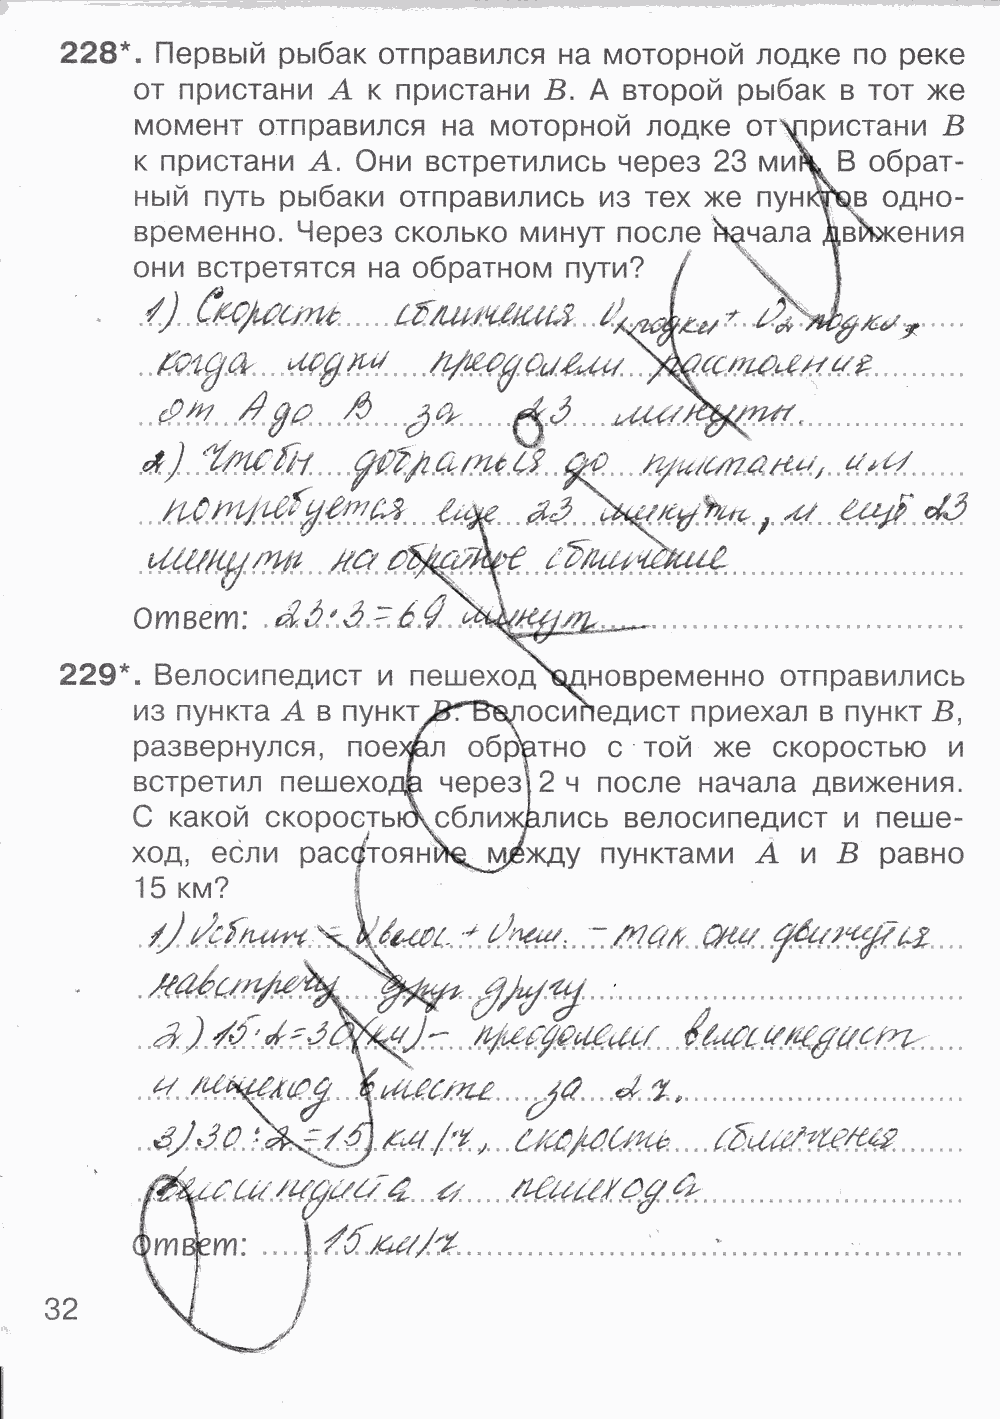 228*. Первый рыбак отправился на моторной лодке по реке
от пристани A к пристани B. А второй рыбак в тот же
момент отправился на моторной лодке от пристани B
к пристани A. Они встретились через 23 мин. В обрат-
ный путь рыбаки отправились из тех же пунктов одно-
временно. Через сколько минут после начала движения
они встретятся на обратном пути?
1) Скорость сближения V1 лодки + V2 лодки,
когда лодки преодолели расстояния
от A до B за 23 минуты.
2) Чтобы добраться до пристани, им
потребуется еще 23 минуты, и ещё 23
минуты на обратное сближение
Ответ: 23·3=69 минут
229*. Велосипедист и пешеход одновременно отправились
из пункта A в пункт B. Велосипедист приехал в пункт B,
развернулся, поехал обратно с той же скоростью и
встретил пешехода через 2 ч после начала движения.
С какой скоростью сближались велосипедист и пеше-
ход, если расстояние между пунктами A и B равно
15 км?
1) Vсближ. = Vвелос. + Vпеш. – так они движутся
навстречу друг другу
2) 15·2=30(км)– преодолели велосипедист
и пешеход вместе за 2ч.
3) 30:2=15 км/ч, скорость сближения
велосипедиста и пешехода
Ответ: 15 км/ч
32